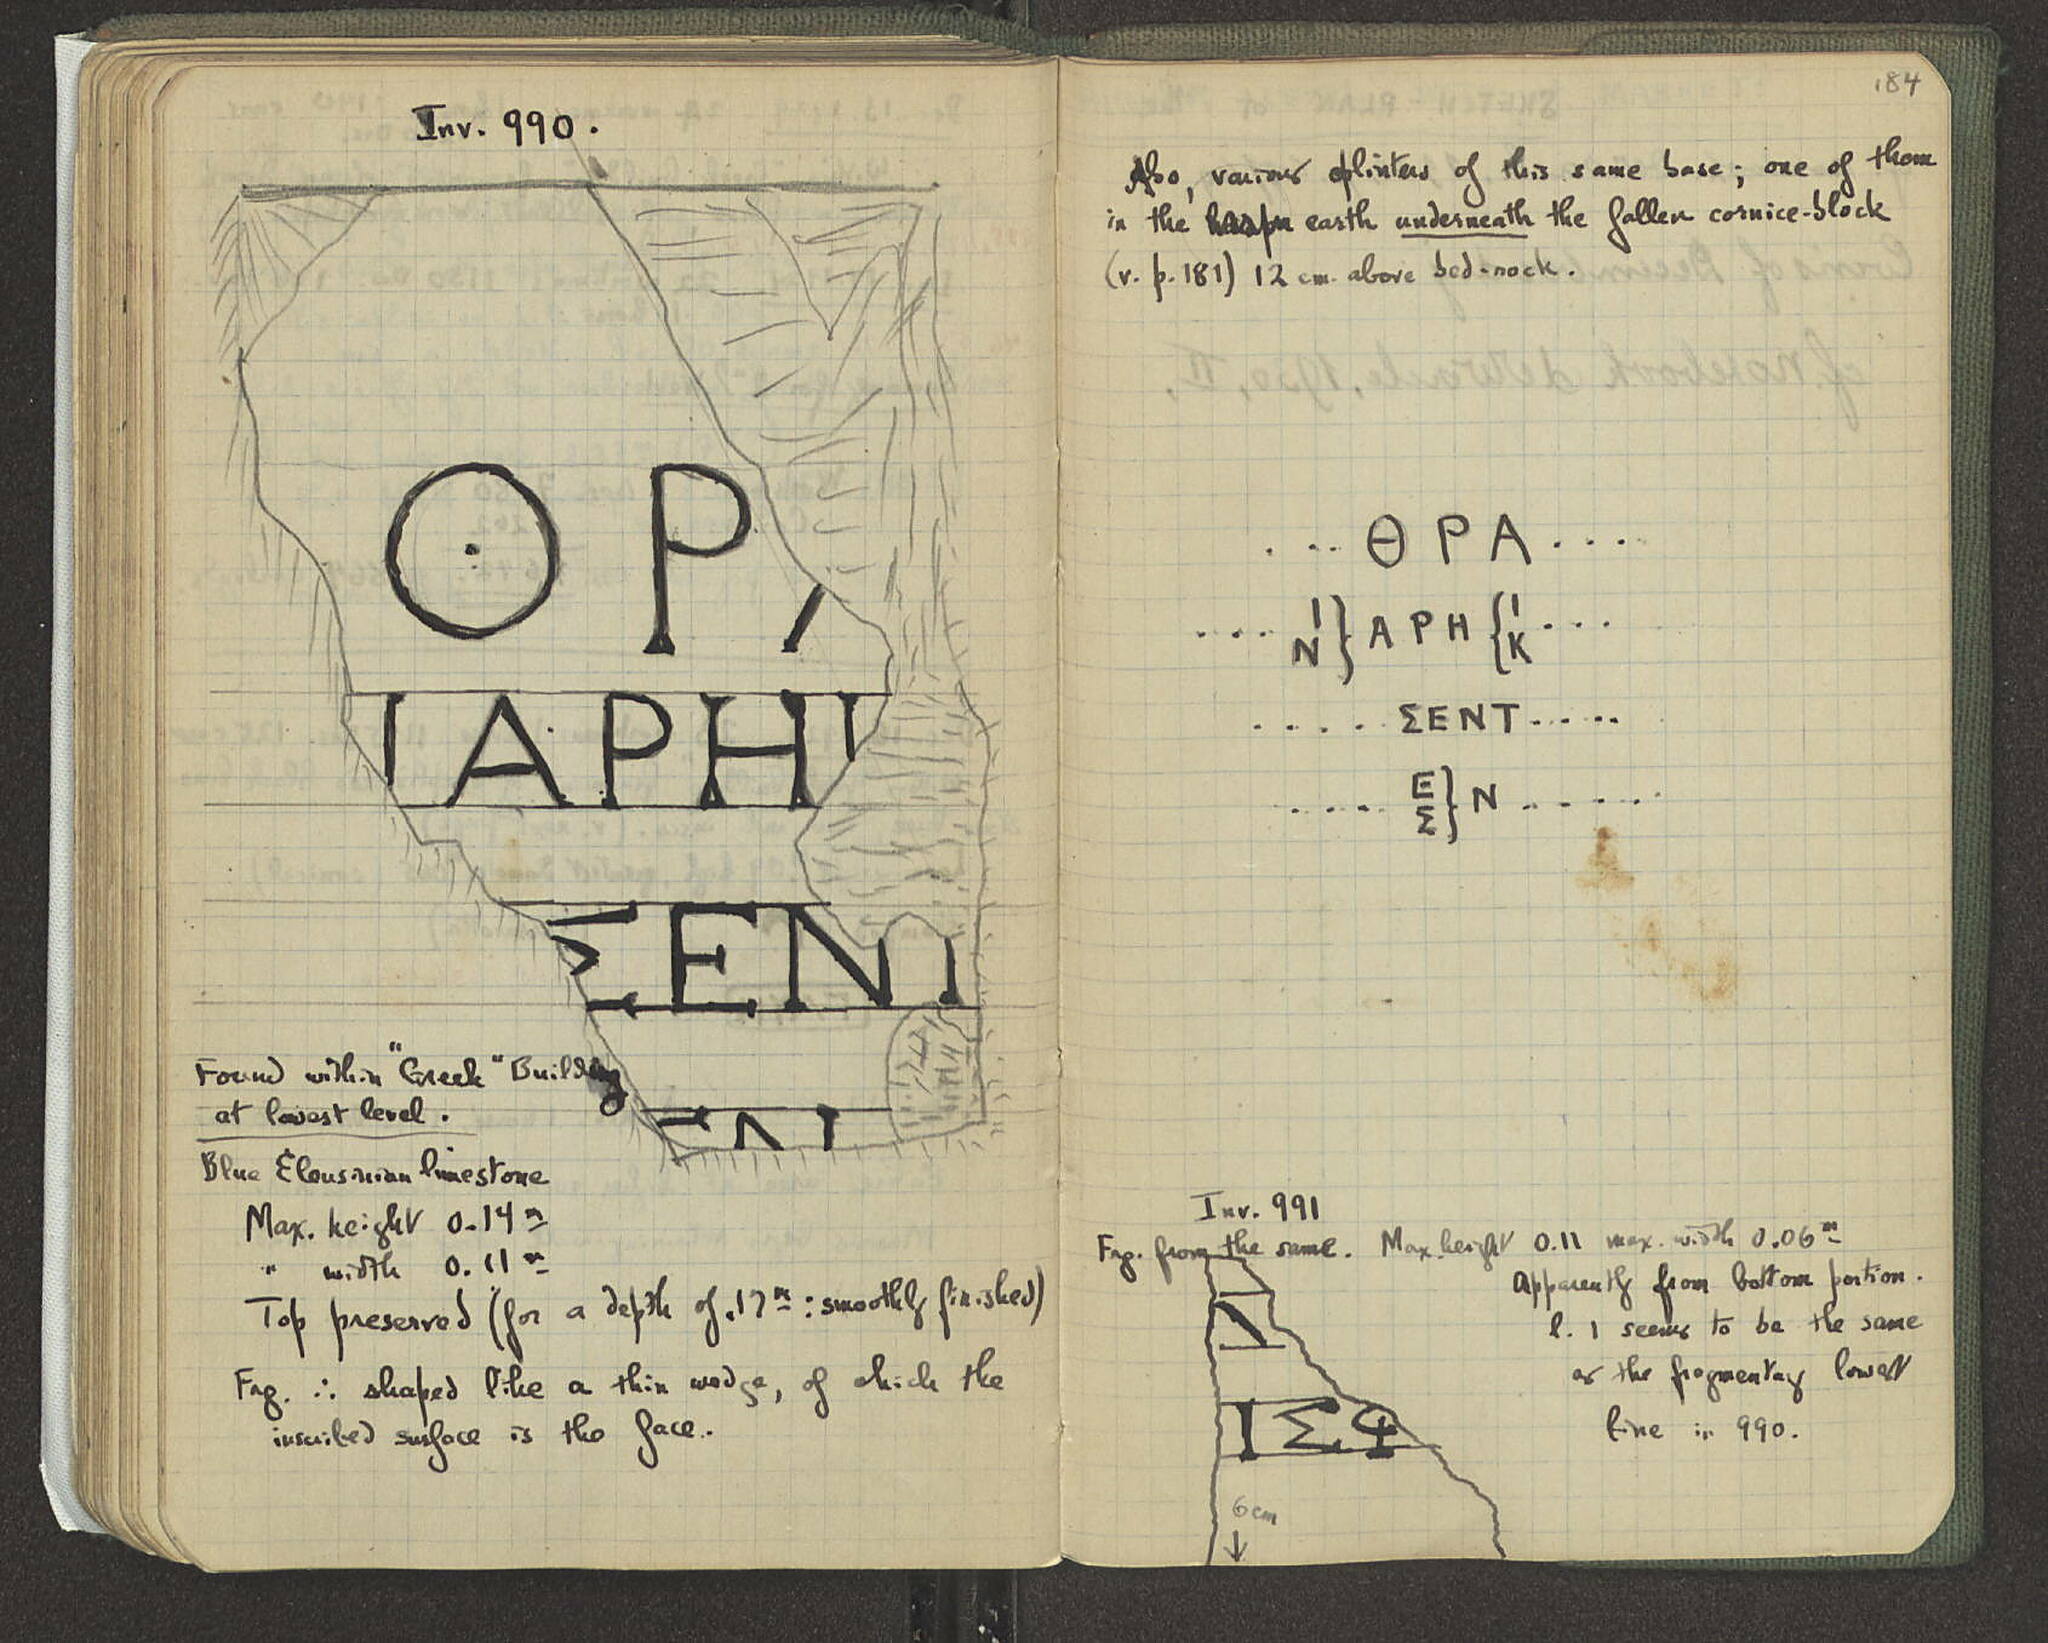 Inv. 990.
ΘΡΑ
ΙΑΡΗΙ
ΣΕΝΤ
ΕΝ
Found within "Greek" Building
at lowest level.
Blue Eleusinian limestone
Max. height 0.14 m
" width 0.11 m
Top preserved (for a depth of .17 m : smoothly finished)
Frg. ∴ shaped like a thin wedge, of which the
inscribed surface is the face.
184
Also, various splinters of this same base; one of them
in the earth underneath the fallen cornice-block
(v. p. 181) 12 cm. above bed-rock.
... Θ Ρ Α ....
.... Ι/Ν } Α Ρ Η { Ι/Κ ...
..... ΣΕΝΤ .....
.... Ε/Σ } Ν ......
Inv. 991
Frg. from the same. Max. height 0.11 max. width 0.06 m
Apparently from bottom portion.
l. 1 seems to be the same
as the fragmentary lowest
line in 990.
Ν
ΙΣΦ
6 cm
↓